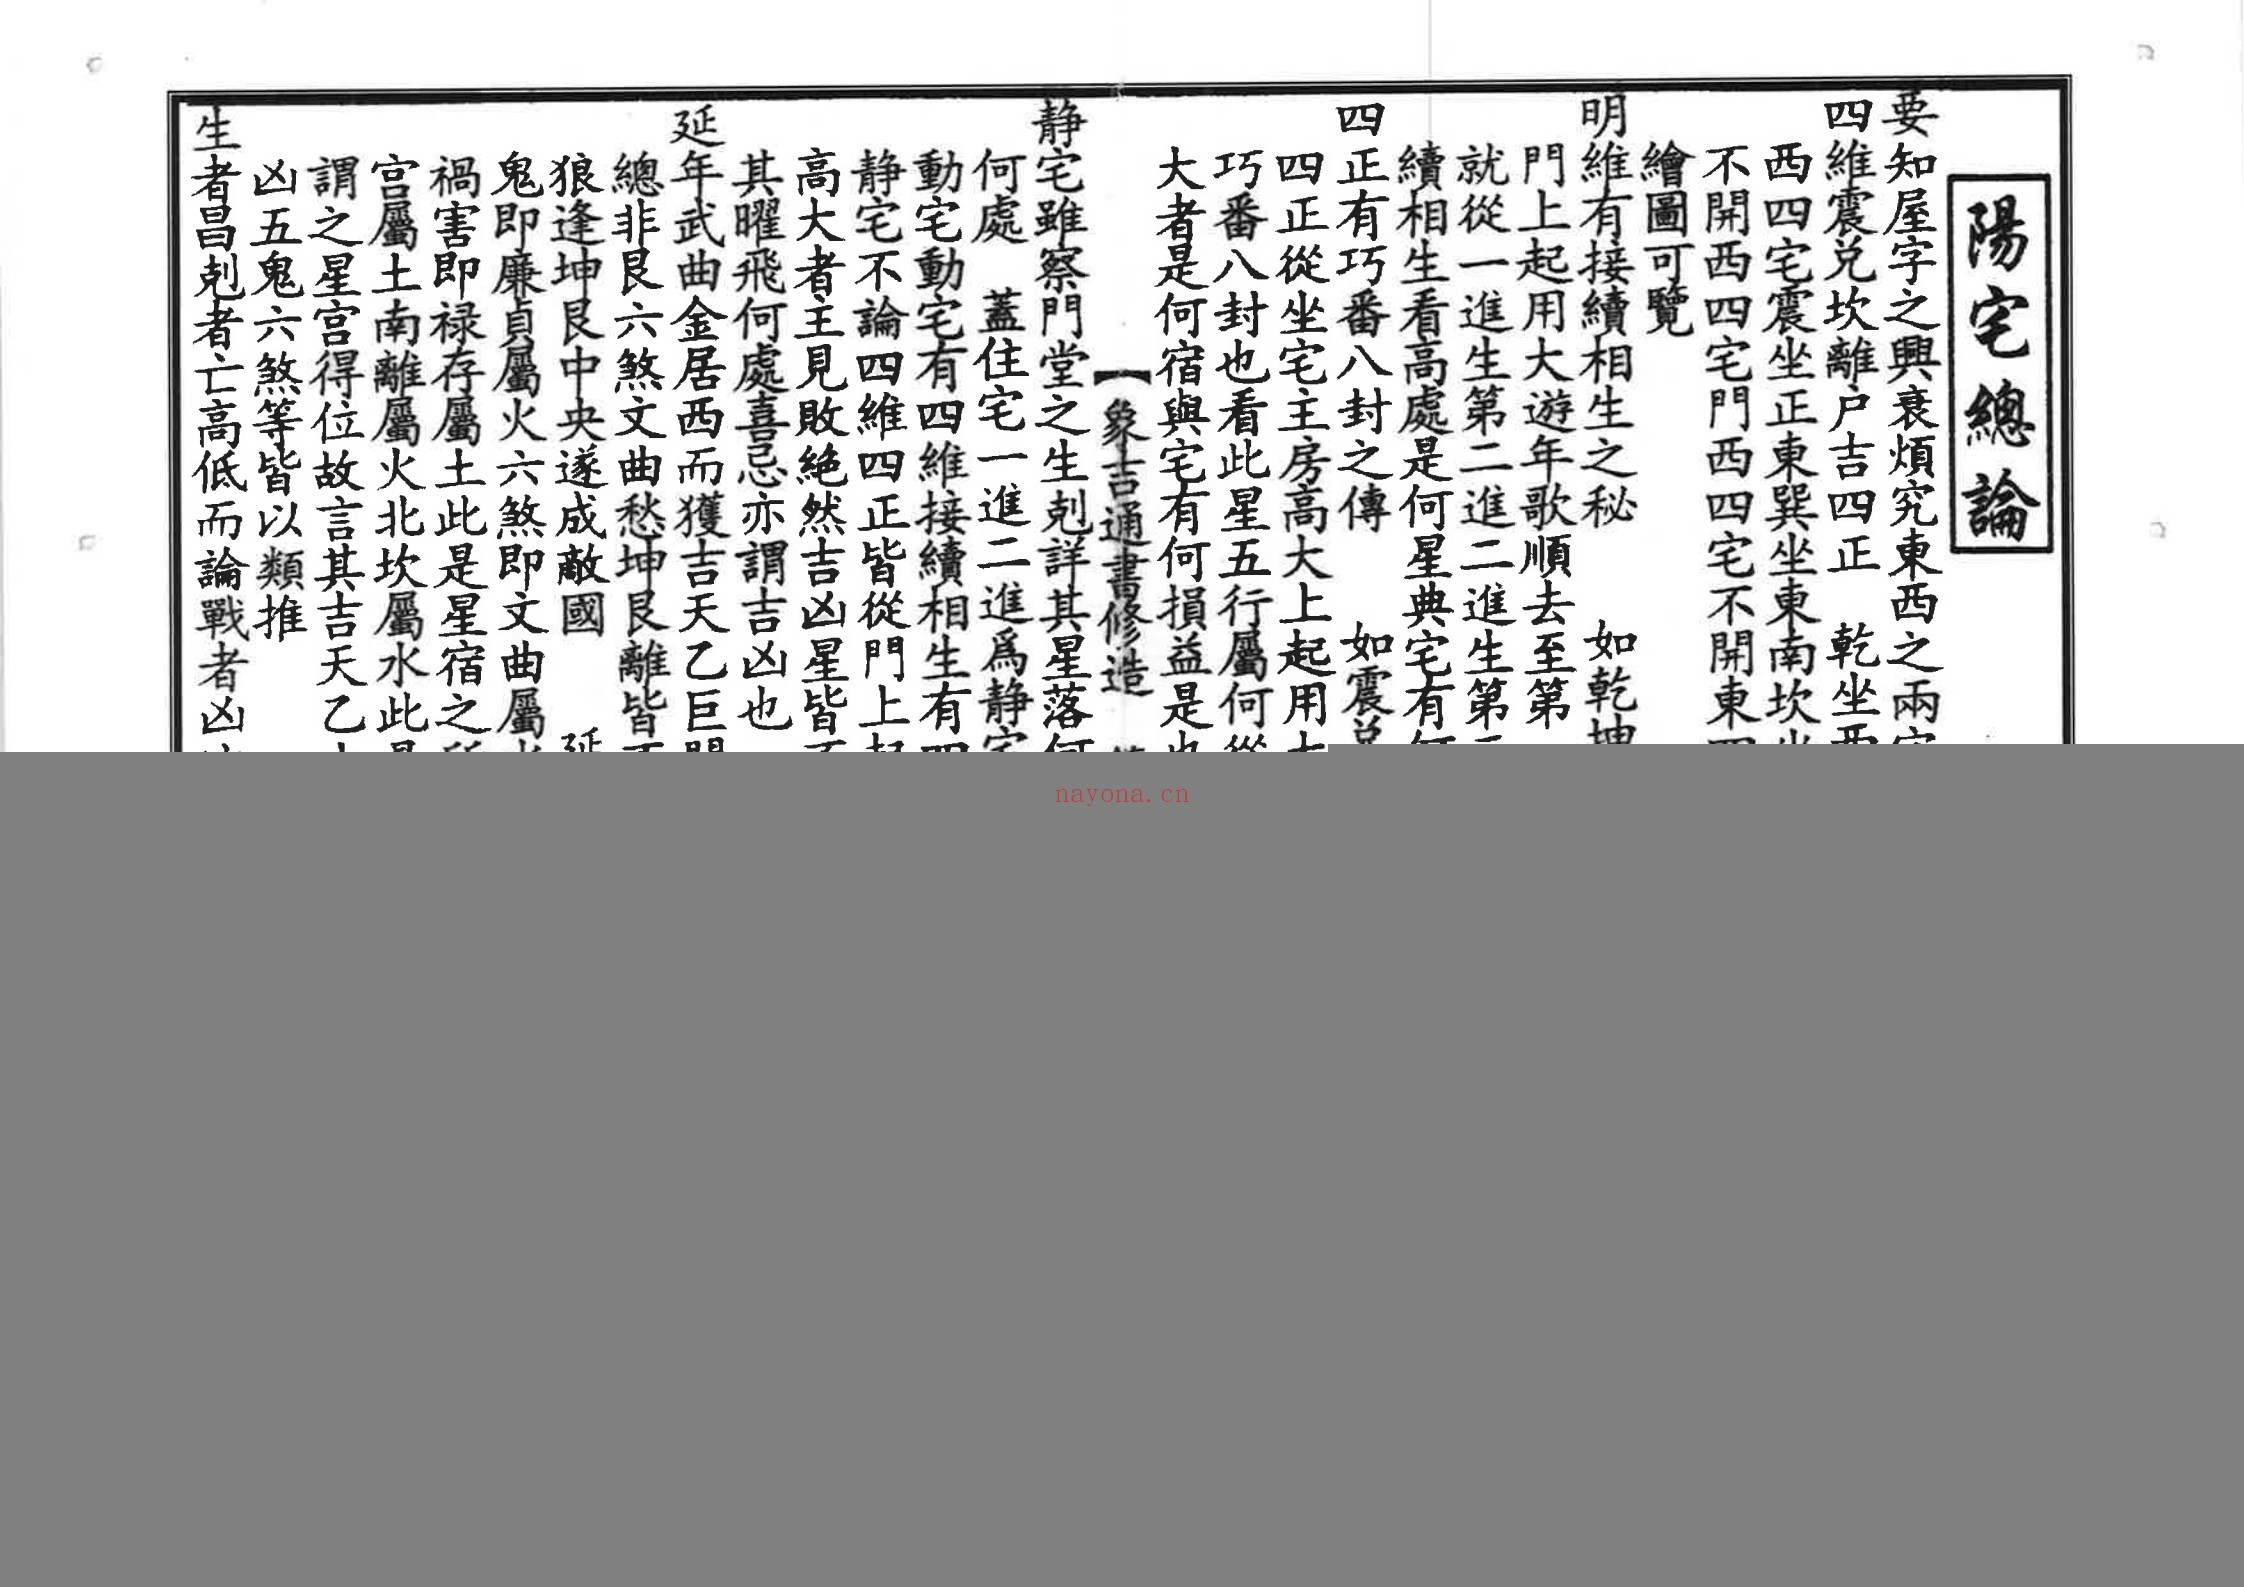 陽宅總論
要知屋字之興衰煩究東西之兩
四維震兑坎離户吉四正 乾坐西
西四宅震坐正東巽坐東南坎
不開西四宅門西四宅不開東
繪圖可覽
明維有接續相生之秘 如乾坤
門上起用大遊年歌順去至第
就從一進生第二進二進生第
續相生看高處是何星典宅有
四正有巧番八封之傳 如震兑
四正從坐宅主房高大上起用
巧番八封也看此星五行屬何從
大者是何宿與宅有何損益是也
【象吉通書修造
静宅雖察門堂之生剋詳其星落何
何處 蓋住宅一進二進爲静宅
動宅動宅有四維接續相生有四
静宅不論四維四正皆從門上起
高大者主見敗絶然吉凶星皆
其曜飛何處喜忌亦謂吉凶也
延年武曲金居西而獲吉天乙巨門
總非艮六煞文曲愁坤艮離皆
狼逢坤艮中央遂成敵國 延
鬼即廉貞屬火六煞即文曲屬水
禍害即禄存屬土此是星宿之
宫屬土南離屬火北坎屬水此是
謂之星宫得位故言其吉天乙
凶五鬼六煞等皆以類推
生者昌剋者亡高低而論戰者凶
nayona.cn